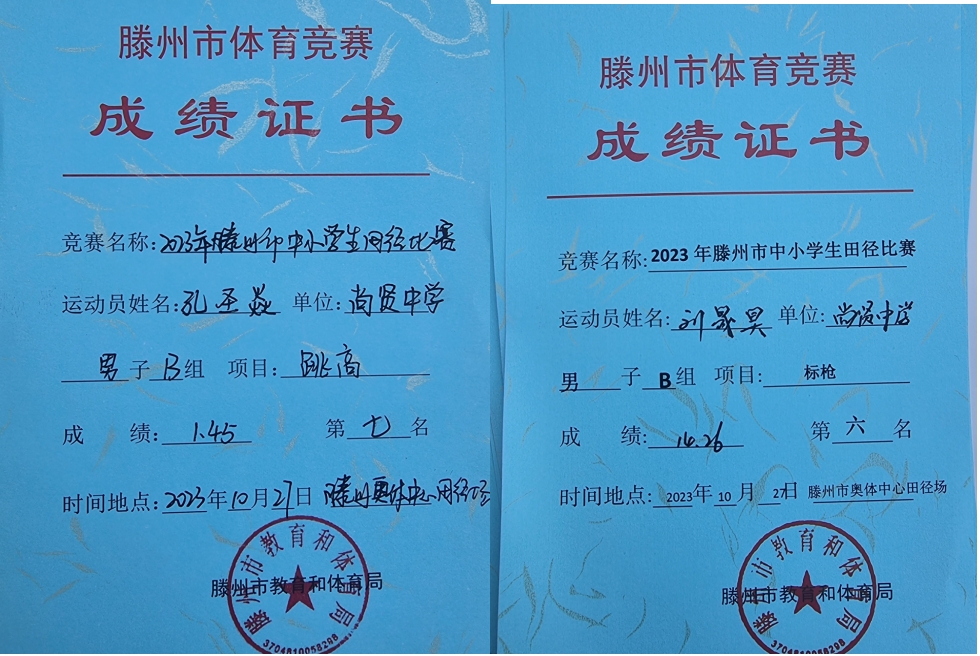 滕州市体育竞赛
成绩证书
竞赛名称:2023年滕州市中小学生田径比赛
运动员姓名:孔圣焱 单位:尚贤中学
男子B组 项目:跳高
成 绩:1.45 第七名
时间地点:2023年10月27日 滕州奥体中心田径场
滕州市教育和体育局
滕州市教育和体育局
3704810058298
滕州市体育竞赛
成绩证书
竞赛名称:2023年滕州市中小学生田径比赛
运动员姓名:刘晟昊 单位:尚贤中学
男子B组 项目:标枪
成 绩:14.26 第六名
时间地点:2023年10月27日 滕州市奥体中心田径场
滕州市教育和体育局
滕州市教育和体育局
3704810058298